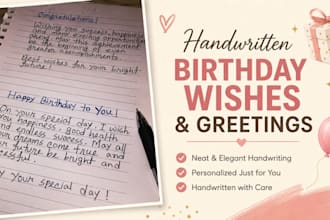 Congratulations!
Wishing you success, happiness
and many exciting
May this achievement
be the beginning of even
greater
Best wishes for your bright
future!
Happy Birthday to You!
On your special day, I wish
you happiness, good health
and endless success. May all
your dreams come true and
future be bright and
your special day !
Handwritten
BIRTHDAY
WISHES
& GREETINGS
Neat & Elegant Handwriting
Personalized Just for You
Handwritten with Care